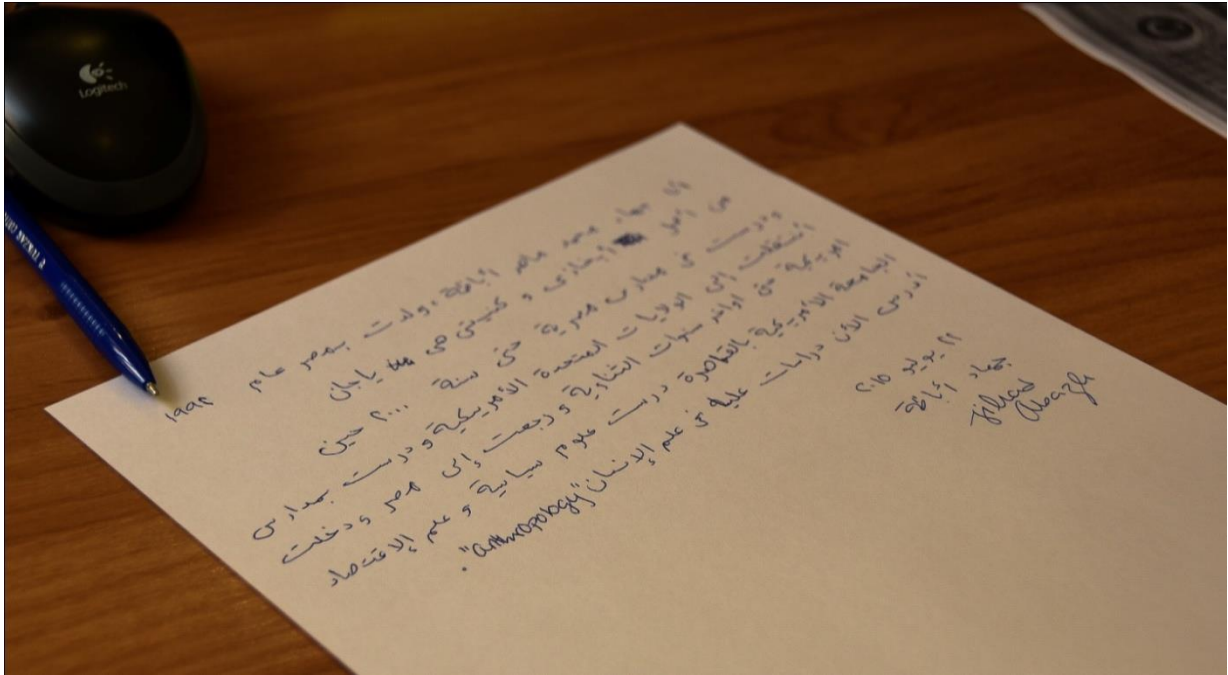 Logitech
أنا جهاد محمد ماهر أباظة، ولدت بمصر عام ١٩٩٢
من أصل أبخازي و كنيتي هي يا
ودرست في مدارس مصرية حتى سنة ٢٠٠٠ حين
انتقلت إلى الولايات المتحدة الأمريكية ودرست بمدارس
امريكية حتى اواخر سنوات الثانوية ورجعت إلى مصر ودخلت
الجامعة الأمريكية بالقاهرة درست علوم سياسية و علم الإقتصاد
أدرس الآن دراسات عليا في علم الإنسان "anthropology".
٢١ يوليو ٢٠١٥
جهاد أباظة
Jihad
Abazh